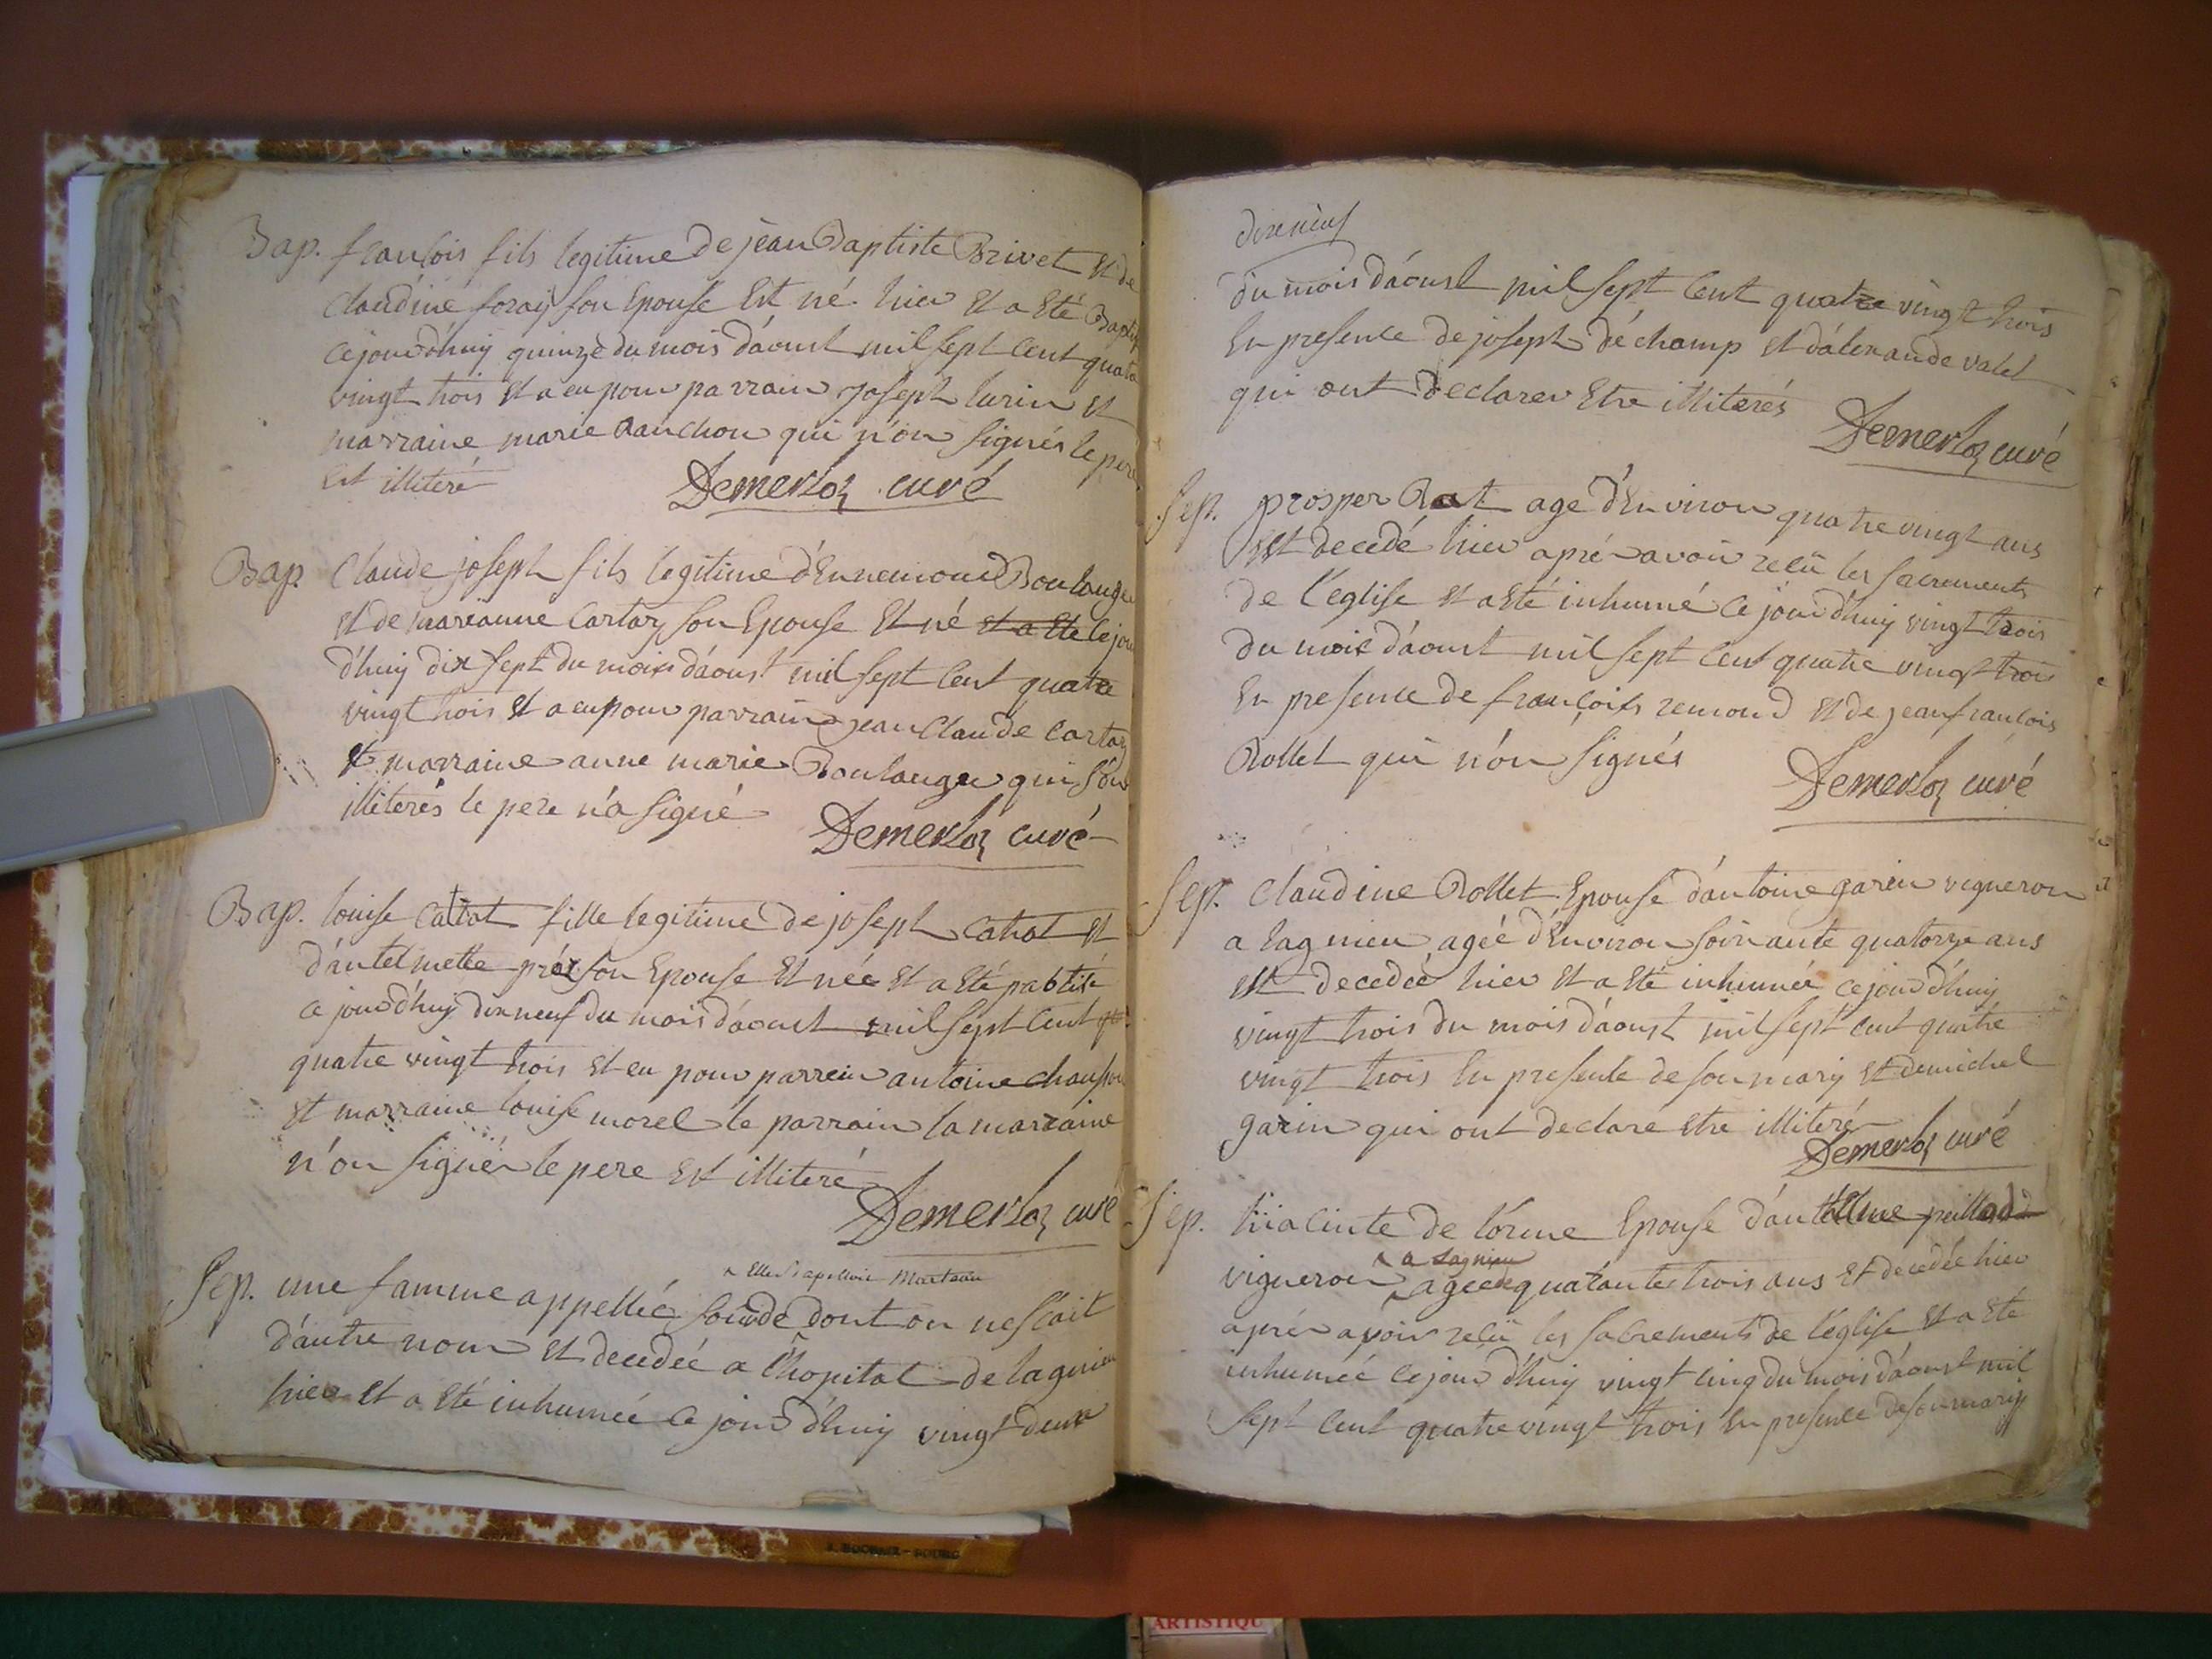 Bap. francois fils legitime de jean Baptiste Brivet et de
Claudine foray son Epouse Est né hier et a Eté Baptisé
cejourd'huy quinze du mois d'aoust mil sept cent quatre
vingt trois et a eu pour parrain joseph lurin et
marraine marie Ranchon qui n'on signés le pere
est illiteré
Demerloz curé
Bap. Claude joseph fils legitime d'Ennemond Boulanger
et de marianne Cartaz son Epouse Et né et a Eté ce jour
d'huy dix sept du mois d'aoust mil sept cent quatre
vingt trois et a eu pour parrain jean Claude Cartaz
et marraine anne marie Boulanger qui son
illiterés le pere n'a signé
Demerloz curé
Bap. louise catrat fille legitime de joseph catrat et
d'antelmette pré son Epouse Et née et a Eté pabtisé
ce jourd'huy dix neuf du mois d'aoust mil sept cent
quatre vingt trois et eu pour parrein antoine
et marraine louise morel le parrain la marraine
n'on signér le pere Est illiteré
Demerloz curé
Elle s'apelloit Marteau
Sep. une famme appellée sourde dont on ne scait
d'autre nom et decedée a l'hopital de lagnieu
hier et a Eté inhumée ce jourd'huy vingt deux
dixneuf
du mois d'aoust mil sept cent quatre vingt trois
En presence de joseph déchamp et d'alexandre valet
qui ont declarer Etre illiterés
Demerloz curé
Sep. prosper Rat age d'Environ quatre vingt ans
est decedé hier aprér avoir recü les sacrements
de l'eglise et a Eté inhumé ce jourd'huy vingt trois
du mois d'aoust mil sept cent quatre vingt trois
En presence de françois remond et de jean francois
Rollet qui n'on signés
Demerloz curé
Sep. Claudine Rollet Epouse d'antoine garin vigneron
a lagnieu ageé d'Environ soixante quatorze ans
est decedeé hier et a Eté inhumée cejourd'huy
vingt trois du mois d'aoust mil sept cent quatre
vingt trois En presence de son mary et de michel
garin qui ont declaré etre illiterér
Demerloz curé
Sep. hiacinte de lorme Epouse d'antelme
a Lagnieu
vigneron ageé quarante trois ans Et decedée hier
aprér avoir recü les sacrements de l'eglise et a Eté
inhumée cejour d'huy vingt cinq du mois d'aoust mil
sept cent quatre vingt trois En presence de son mary
ARTISTIQU